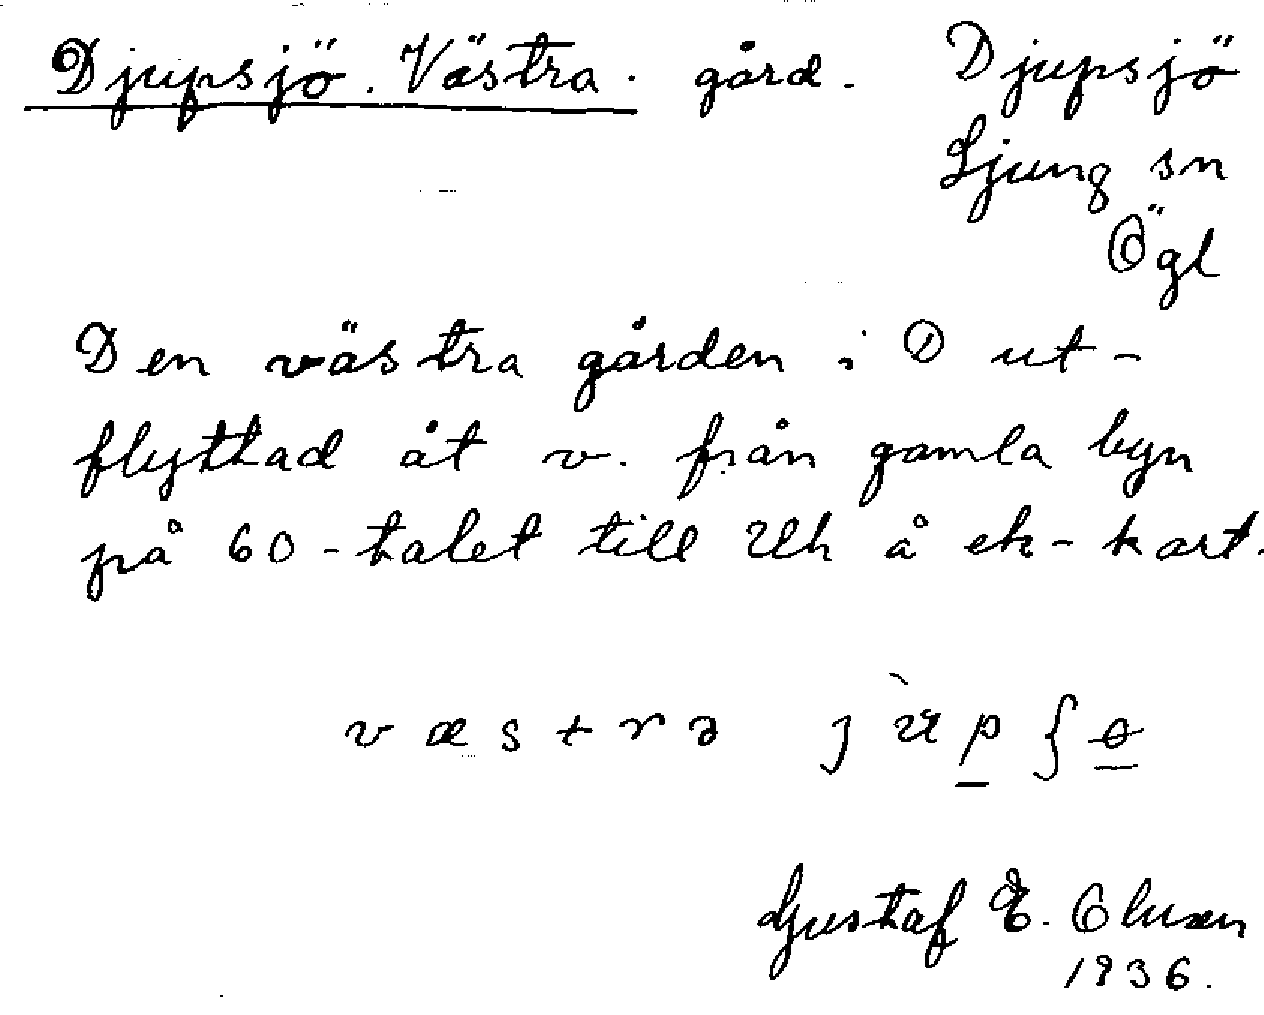 Djupsjö. Västra. gård. Djupsjö
Ljung sn
Ögl
Den västra gården i D ut-
flyttad åt v. från gamla byn
på 60-talet till Uh å ek-kart.
væstrə jùpʃɵ
Gustaf E. Olsson
1936.